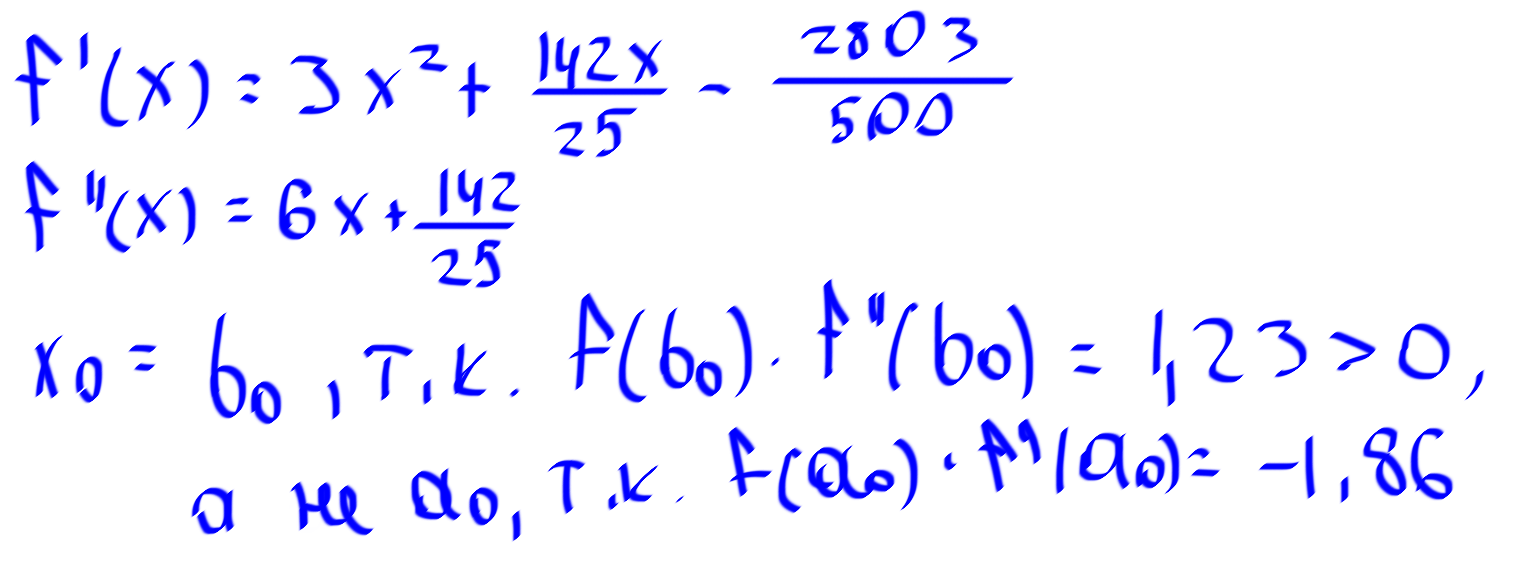 f'(x) = 3x² + 142x/25 - 2803/500
f''(x) = 6x + 142/25
x₀ = b₀, т.к. f(b₀) · f''(b₀) = 1,23 > 0,
а не a₀, т.к. f(a₀) · f''(a₀) = -1,86